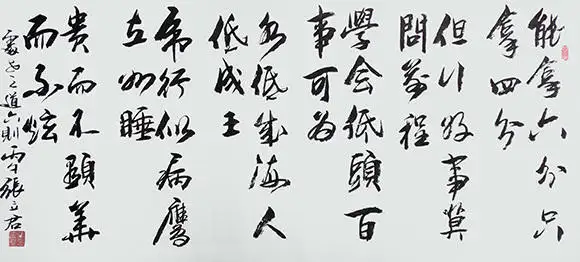 能拿六分只
拿四分
但行好事莫
問前程
學会低頭百
事可为
水低成海人
低成王
虎行似病鷹
立如睡
貴而不顯華
而不炫
處世之道六則 張立君